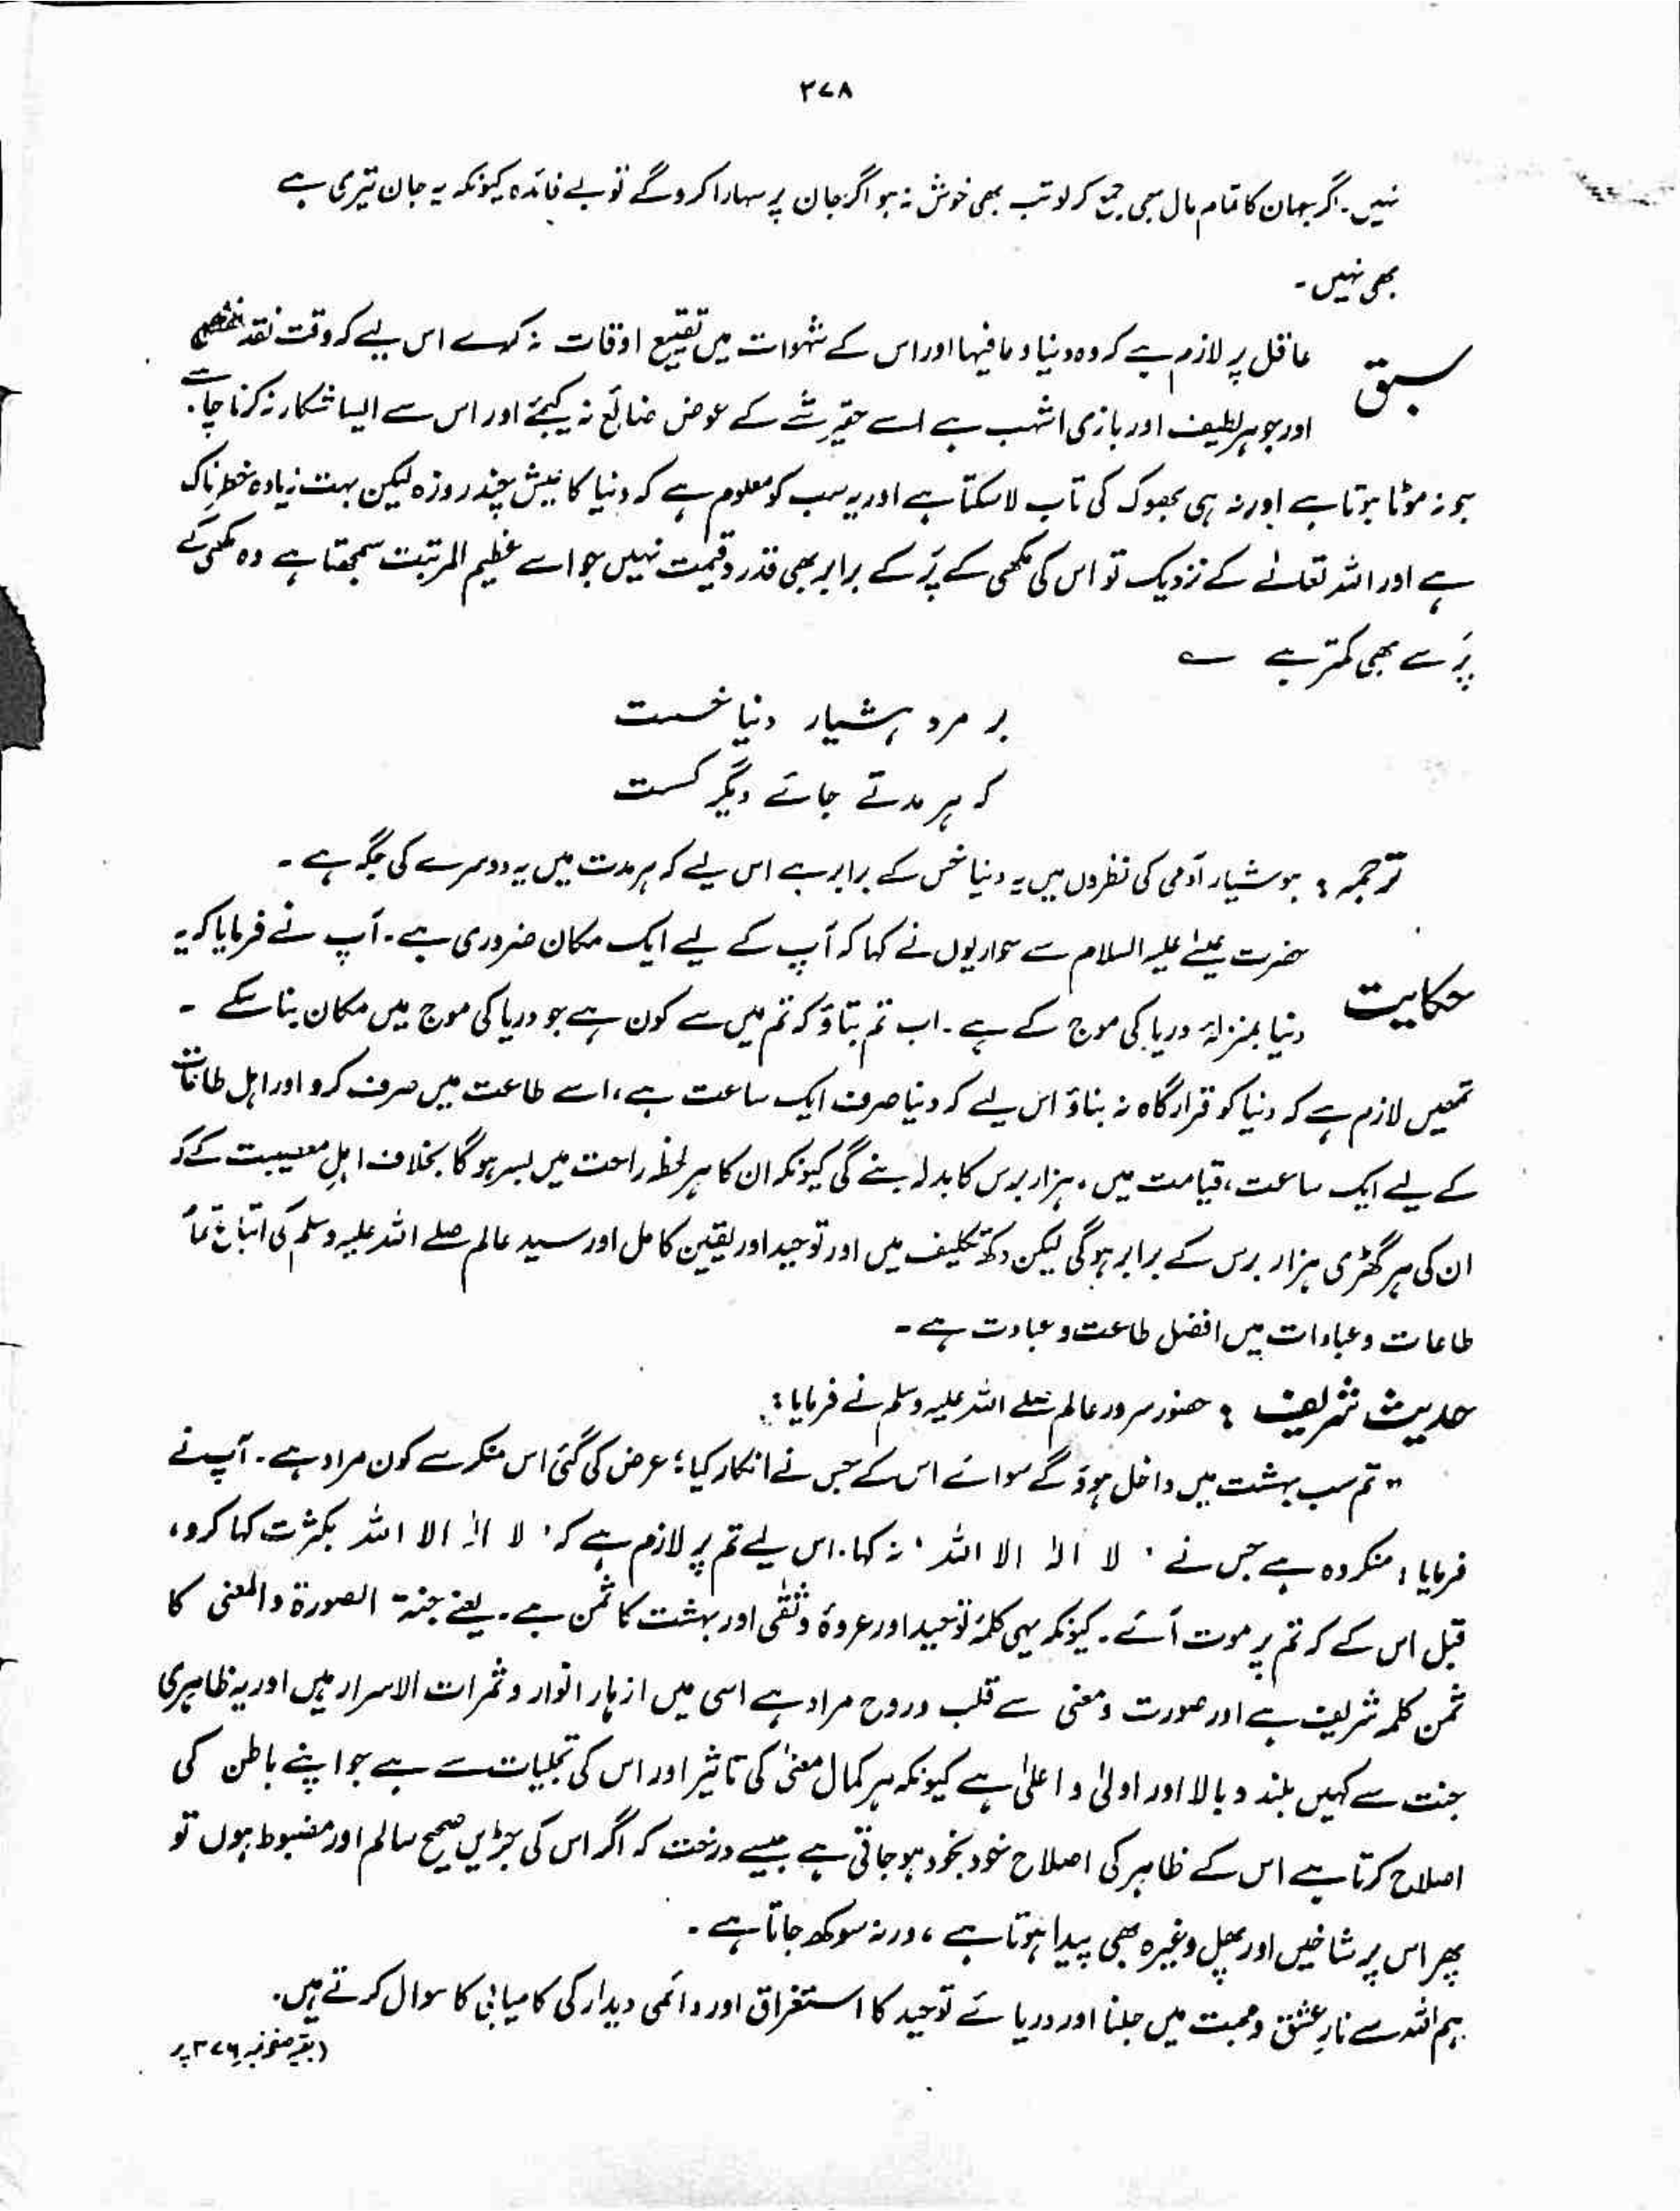 ۲۷۸
نہیں۔ اگر جہان کا تمام مال بھی جمع کر لو تب بھی خوش نہ ہو اگر جان پر سہارا کرو گے تو بے فائدہ کیونکہ یہ جان تیری ہے
بھی نہیں۔
سبق عاقل پر لازم ہے کہ وہ دنیا و مافیہا اور اس کے شہوات میں تضییع اوقات نہ کرے اس لیے کہ وقت نقد
اور جوہر لطیف اور بازی اشہب ہے اسے حقیر شے کے عوض ضائع نہ کیجئے اور اس سے ایسا شکار نہ کرنا چاہے
جو نہ موٹا ہوتا ہے اور نہ ہی بھوک کی تاب لا سکتا ہے اور یہ سب کو معلوم ہے کہ دنیا کا عیش چند روزہ لیکن بہت زیادہ خطرناک
ہے اور اللہ تعالےٰ کے نزدیک تو اس کی مکھی کے پَر کے برابر بھی قدر و قیمت نہیں جو اسے عظیم المرتبت سمجھتا ہے وہ مکھی کے
پَر سے بھی کمتر ہے ؎
بر مرد ہشیار دنیا خسست
کہ ہر مدتے جائے دیگر کسست
ترجمہ : ہوشیار آدمی کی نظروں میں یہ دنیا خس کے برابر ہے اس لیے کہ ہر مدت میں یہ دوسرے کی جگہ ہے۔
حکایت حضرت عیسٰے علیہ السلام سے حواریوں نے کہا کہ آپ کے لیے ایک مکان ضروری ہے۔ آپ نے فرمایا کہ یہ
دنیا بمنزلہ دریا کی موج کے ہے۔ اب تم بتاؤ کہ تم میں سے کون ہے جو دریا کی موج میں مکان بنا سکے۔
تمھیں لازم ہے کہ دنیا کو قرار گاہ نہ بناؤ اس لیے کہ دنیا صرف ایک ساعت ہے، اسے طاعت میں صرف کرو اور اہل طاعات
کے لیے ایک ساعت، قیامت میں، ہزار برس کا بدلہ بنے گی کیونکہ ان کا ہر لحظہ راحت میں بسر ہوگا بخلاف اہلِ معصیبت کے کہ
ان کی ہر گھڑی ہزار برس کے برابر ہوگی لیکن دکھ تکلیف میں اور توحید اور یقین کامل اور سید عالم صلے اللہ علیہ وسلم کی اتباع تمام
طاعات و عبادات میں افضل طاعت و عبادت ہے۔
حدیث شریف : حضور سرور عالم صلے اللہ علیہ وسلم نے فرمایا :
" تم سب بہشت میں داخل ہوؤ گے سوائے اس کے جس نے انکار کیا؛ عرض کی گئی اس منکر سے کون مراد ہے۔ آپ نے
فرمایا : منکر وہ ہے جس نے ' لا الٰہ الا اللہ ' نہ کہا۔ اس لیے تم پر لازم ہے کہ ' لا الٰہ الا اللہ بکثرت کہا کرو،
قبل اس کے کہ تم پر موت آئے۔ کیونکہ یہی کلمۂ توحید اور عروۂ وثقٰی اور بہشت کا ثمن ہے۔ یعنے جنۃ الصورۃ والمعنی کا
ثمن کلمہ شریف ہے اور صورت و معنی سے قلب و روح مراد ہے اسی میں ازہار انوار و ثمرات الاسرار ہیں اور یہ ظاہری
جنت سے کہیں بلند و بالا اور اولیٰ و اعلیٰ ہے کیونکہ ہر کمال معنیٰ کی تاثیر اور اس کی تجلیات سے ہے جو اپنے باطن کی
اصلاح کرتا ہے اس کے ظاہر کی اصلاح خود بخود ہو جاتی ہے جیسے درخت کہ اگر اس کی جڑیں صحیح سالم اور مضبوط ہوں تو
پھر اس پر شاخیں اور پھل وغیرہ بھی پیدا ہوتا ہے، ورنہ سوکھ جاتا ہے۔
ہم اللہ سے نارِ عشق و محبت میں جلنا اور دریائے توحید کا استغراق اور دائمی دیدار کی کامیابی کا سوال کرتے ہیں۔
(بقیہ صفحہ نمبر ۳۷۶ پر